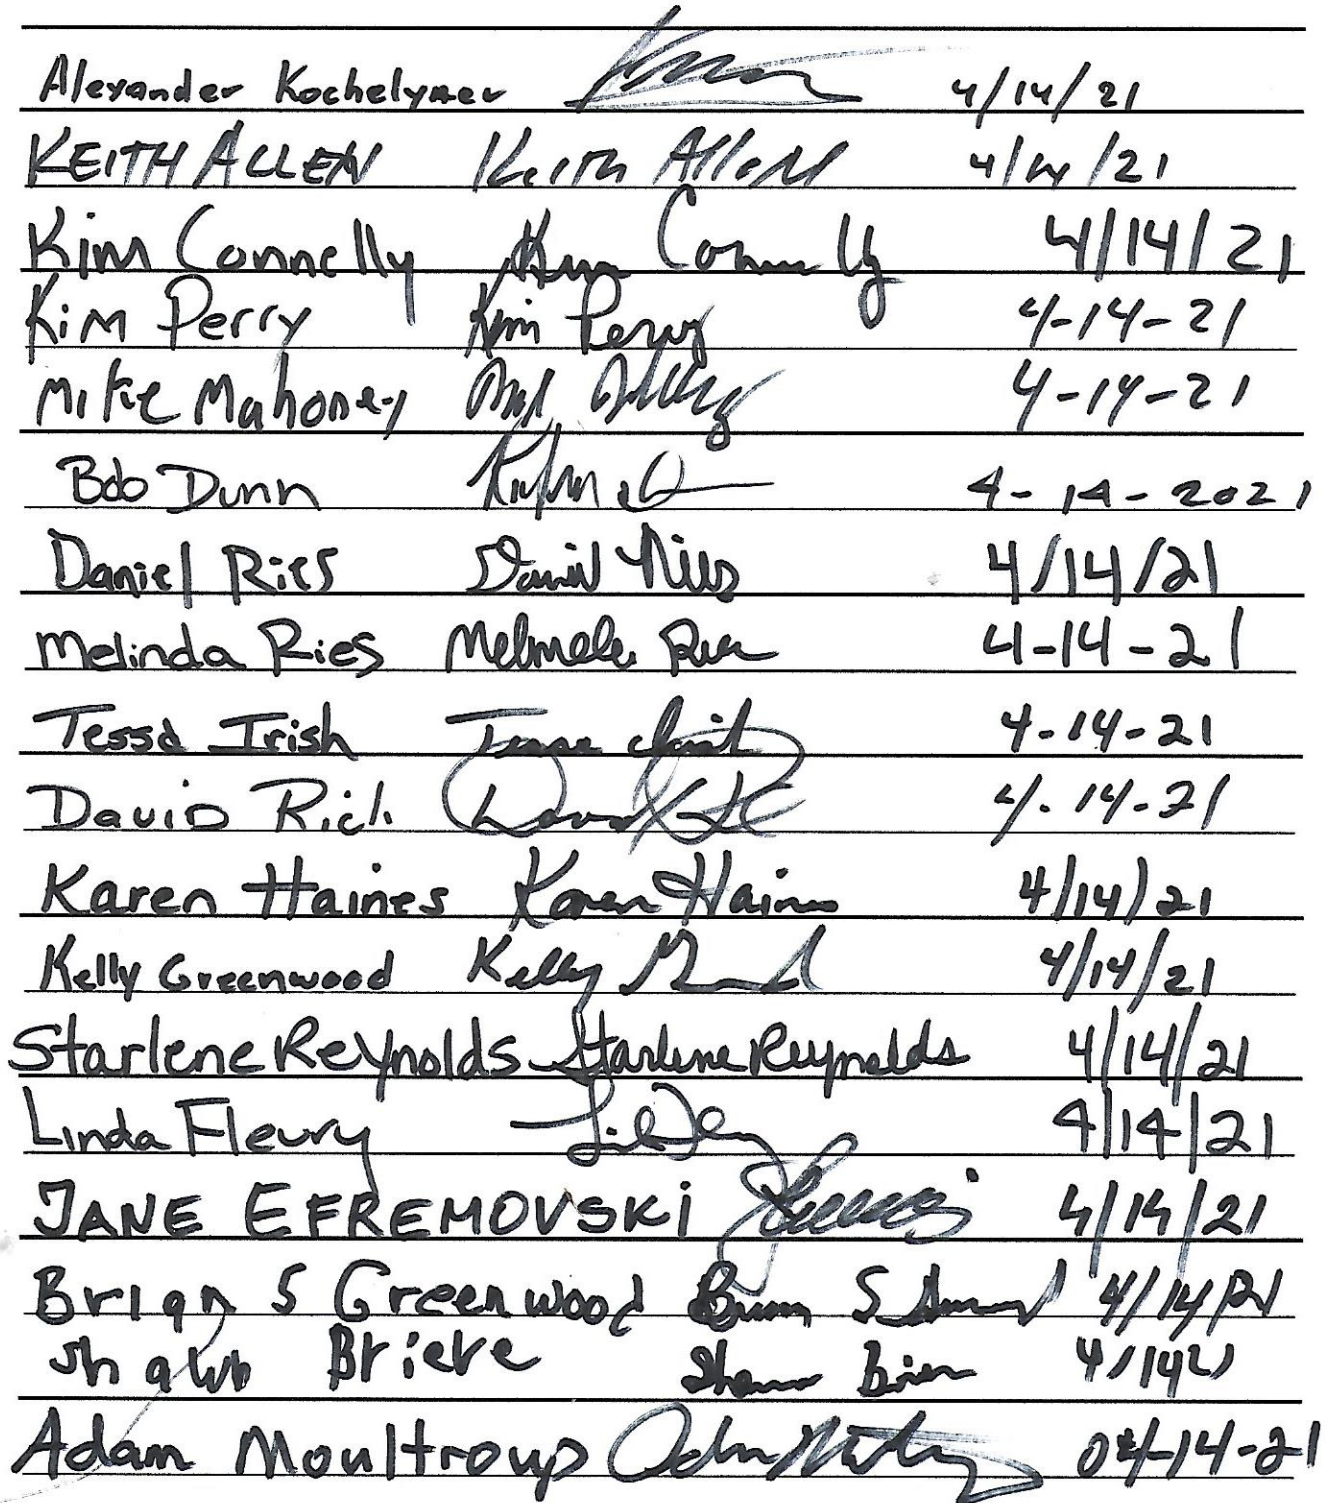 Alexander Kochelymer 4/14/21
KEITH ALLEN Keith Allen 4/14/21
Kim Connelly Kim Connelly 4/14/21
Kim Perry Kim Perry 4-14-21
Mike Mahoney 4-14-21
Bob Dunn 4-14-2021
Daniel Ries Daniel Ries 4/14/21
Melinda Ries Melinda Ries 4-14-21
Tessa Irish Tessa Irish 4-14-21
David Rich David 4-14-21
Karen Haines Karen Haines 4/14/21
Kelly Greenwood Kelly 4/14/21
Starlene Reynolds Starlene Reynolds 4/14/21
Linda Fleury 4/14/21
JANE EFREMOVSKI 4/14/21
Brian S Greenwood Brian S 4/14/21
Shawn Brieve Shawn 4/1421
Adam Moultroup Adam 04-14-21